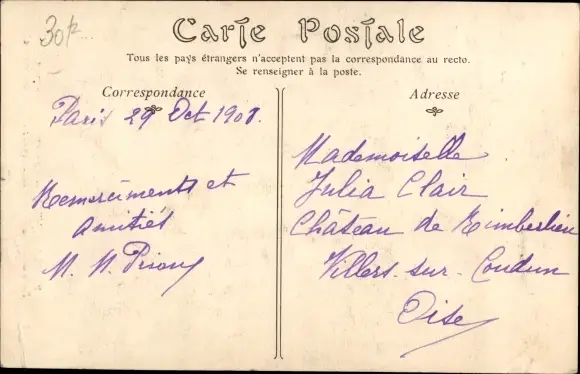 30k
Carte Postale
Tous les pays étrangers n'acceptent pas la correspondance au recto.
Se renseigner à la poste.
Correspondance
Adresse
Paris 29 Oct 1908.
Remerciments et
Amitiés
Mademoiselle
Julia Clair
Château de Rimberlieu
Villers-sur-Coudun
Oise